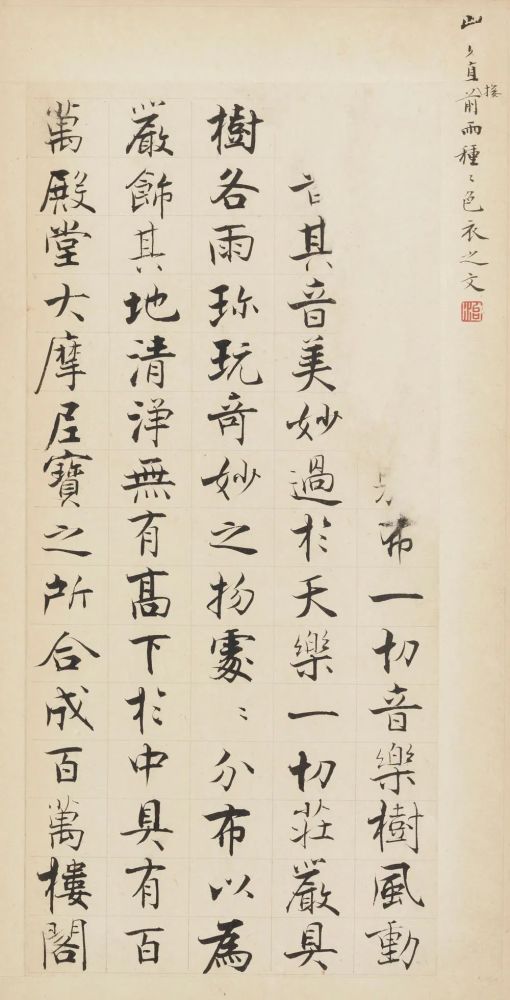 直接前雨種〻色衣之文
布一切音樂樹風動
其音美妙過於天樂一切莊嚴具
樹各雨珎玩奇妙之物處〻分布以為
嚴飾其地清淨無有髙下於中具有百
萬殿堂大摩尼寶之所合成百萬樓閣